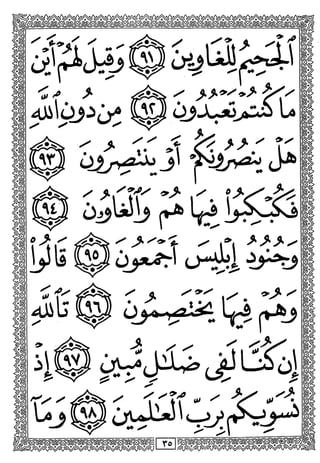 ٱلْجَحِيمُ لِلْغَاوِينَ ٩١ وَقِيلَ لَهُمْ أَيْنَ
مَا كُنتُمْ تَعْبُدُونَ ٩٢ مِن دُونِ ٱللَّهِ
هَلْ يَنصُرُونَكُمْ أَوْ يَنتَصِرُونَ ٩٣
فَكُبْكِبُوا۟ فِيهَا هُمْ وَٱلْغَاوُۥنَ ٩٤
وَجُنُودُ إِبْلِيسَ أَجْمَعُونَ ٩٥ قَالُوا۟
وَهُمْ فِيهَا يَخْتَصِمُونَ ٩٦ تَٱللَّهِ
إِن كُنَّا لَفِى ضَلَـٰلٍ مُّبِينٍ ٩٧ إِذْ
نُسَوِّيكُم بِرَبِّ ٱلْعَـٰلَمِينَ ٩٨ وَمَآ
٣٥